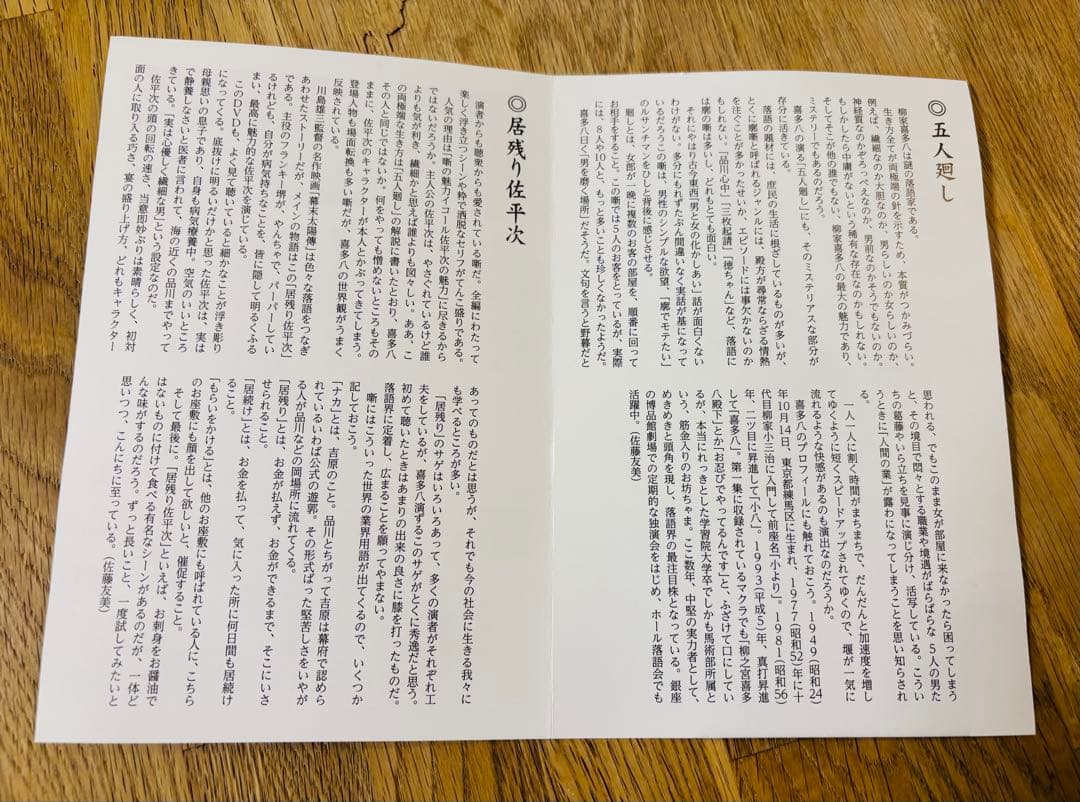 ◎五人廻し
柳家喜多八は謎の落語家である。
生き方全てが両極端の針を示すため、本質がつかみづらい。
例えば、繊細なのか大胆なのか、男らしいのか女らしいのか、
神経質なのかぞろっぺえなのか、男前なのかそうでもないのか。
もしかしたら中庸がないという稀有な存在なのかもしれない。
そしてそこが他の誰でもない、柳家喜多八の最大の魅力であり、
ミステリーでもあるのだろう。
喜多八の演る「五人廻し」にも、そのミステリアスな部分が
存分に活きている。
落語の題材には、庶民の生活に根ざしているものが多いが、
とくに廓噺と呼ばれるジャンルには、殿方が尋常ならざる情熱
を注ぐことが多かったせいか、エピソードには事欠かないのか
もしれない。「品川心中」「三枚起請」「徳ちゃん」など、落語に
は廓の噺は多いし、どれもとても面白い。
それにやはり古今東西「男と女の化かしあい」話が面白くない
わけがない。多分にもれずたぶん間違いなく実話が基になって
いるだろうこの噺は、男性のシンプルな欲望、「廓でモテたい」
のルサンチマンをひしと背後に感じさせる。
廻しとは、女郎が一晩に複数のお客の部屋を、順番に回って
お相手をすること。この噺では5人のお客をとっているが、実際
には、8人や10人と、もっと多いことも珍しくなかったようだ。
喜多八曰く「男を磨く場所」だそうだ。文句を言うと野暮だと
思われる、でもこのまま女が部屋に来なかったら困ってしまう
と、その境目で悶々とする職業や境遇がばらばらな5人の男た
ちの葛藤やいら立ちを見事に演じ分け、活写している。こうい
うときに「人間の業」が露わになってしまうことを思い知らされ
る。
一人一人に割く時間がまちまちで、だんだんと加速度を増し
てゆくように短くスピードアップされてゆくので、堰が一気に
流れるような快感があるのも演出なのだろうか。
喜多八のプロフィールにも触れておこう。1949(昭和24)
年10月14日、東京都練馬区に生まれ、1977(昭和52)年に十
代目柳家小三治に入門して前座名「小より」。1981(昭和56)
年、二ツ目に昇進して「小八」。1993(平成5)年、真打昇進
して「喜多八」。第一集に収録されているマクラでも「柳之宮喜多
八殿下」とか「お忍びでやってるんです」と、ふざけて口にしてい
るが、本当にれっきとした学習院大学卒でしかも馬術部所属と
いう、筋金入りのお坊ちゃま。ここ数年、中堅の実力者として、
めきめきと頭角を現し、落語界の最注目株となっている。銀座
の博品館劇場での定期的な独演会をはじめ、ホール落語会でも
活躍中。(佐藤友美)
◎居残り佐平次
演者からも聴衆からも愛されている噺だ。全編にわたって
楽しく浮き立つシーンや粋で洒脱なセリフがてんこ盛りである。
人気の理由は「噺の魅力イコール佐平次の魅力」に尽きるから
ではないだろうか。主人公の佐平次は、やさぐれているけど誰
よりも気が利き、繊細かと思えば誰よりも図々しい。ああ、こ
の両極端な生き方は「五人廻し」の解説に書いたとおり、喜多八
その人と同じではないか。何をやっても憎めないところもその
ままに、佐平次のキャラクターが本人とかぶってきてしまう。
登場人物も場面転換も多い噺だが、喜多八の世界観がうまく
反映されている。
川島雄三監督の名作映画「幕末太陽傳」は色々な落語をつなぎ
あわせたストーリーだが、メインの物語はこの「居残り佐平次」
である。主役のフランキー堺が、やんちゃで、パーパーしてい
るけれども、自分が病気持ちなことを、皆に隠して明るくふる
まい、最高に魅力的な佐平次を演じている。
このDVDも、よく見て聴いていると細かなことが浮き彫り
になってくる。底抜けに明るいだけかと思った佐平次は、実は
母親思いの息子であり、自身も病気療養中。空気のいいところ
で静養しなさいと医者に言われて、海の近くの品川までやって
きている。「実は心優しく繊細な男」という設定なのだ。
佐平次の頭の回転の速さ、当意即妙ぶりは素晴らしく、初対
面の人に取り入る巧さ、宴の盛り上げ方、どれもキャラクター
あってのものだとは思うが、それでも今の社会に生きる我々に
も学べるところが多い。
「居残り」のサゲはいろいろあって、多くの演者がそれぞれ工
夫をしているが、喜多八演するこのサゲがとくに秀逸だと思う。
初めて聴いたときはあまりの出来の良さに膝を打ったものだ。
落語界に定着し、広まることを願ってやまない。
噺にはこういった世界の業界用語が出てくるので、いくつか
記しておこう。
「ナカ」とは、吉原のこと。品川とちがって吉原は幕府で認めら
れているいわば公式の遊郭。その形式ばった堅苦しさをいやが
る人が品川などの岡場所に流れてくる。
「居残り」とは、お金が払えず、お金ができるまで、そこにいさ
せられること。
「居続け」とは、お金を払って、気に入った所に何日間も居続け
ること。
「もらいをかける」ことは、他のお座敷にも呼ばれている人に、こちら
のお座敷にも顔を出して欲しいと、催促すること。
そして最後に。「居残り佐平次」といえば、お刺身をお醤油で
はないものに付けて食べる有名なシーンがあるのだが、一体ど
んな味がするのだろう。ずっと長いこと、一度試してみたいと
思いつつ、こんにちに至っている。(佐藤友美)